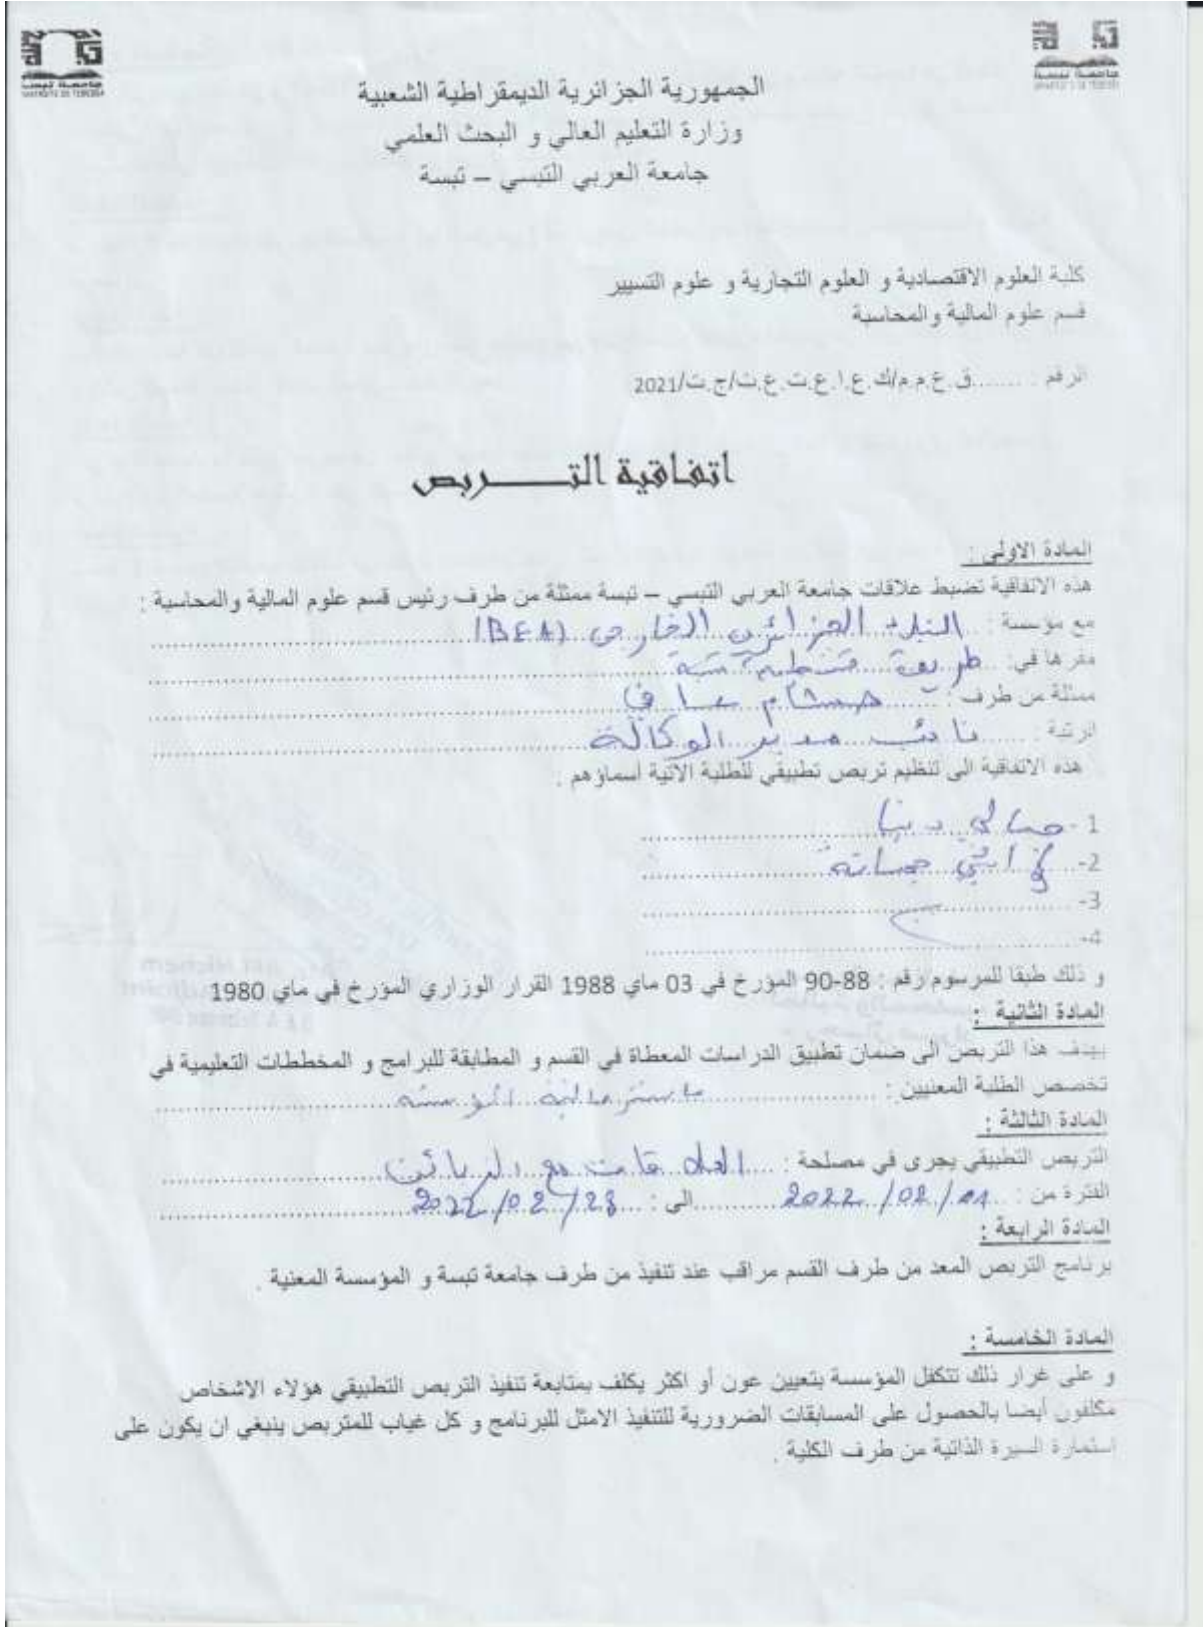 جامعة تبسة
الجمهورية الجزائرية الديمقراطية الشعبية
وزارة التعليم العالي و البحث العلمي
جامعة العربي التبسي – تبسة
كلية العلوم الاقتصادية و العلوم التجارية و علوم التسيير
قسم علوم المالية والمحاسبة
الرقم : .......ق.ع.م.م/ك.ع.ا.ع.ت.ع.ت/ج.ت/2021
اتفاقية التـــــربص
المادة الاولى :
هذه الاتفاقية تضبط علاقات جامعة العربي التبسي – تبسة ممثلة من طرف رئيس قسم علوم المالية والمحاسبة :
مع مؤسسة : البنك الجزائري الخارجي (BEA)
مقرها في: طريق قسنطينة تبسة
ممثلة من طرف : هشام
الرتبة : نائب مدير الوكالة
هذه الاتفاقية الى تنظيم تربص تطبيقي للطلبة الآتية أسماؤهم :
1- دينا
2- جمانة
3-
4-
و ذلك طبقا للمرسوم رقم : 88-90 المؤرخ في 03 ماي 1988 القرار الوزاري المؤرخ في ماي 1980
المادة الثانية :
يهدف هذا التربص الى ضمان تطبيق الدراسات المعطاة في القسم و المطابقة للبرامج و المخططات التعليمية في
تخصص الطلبة المعنيين : ماستر مالية المؤسسة
المادة الثالثة :
التربص التطبيقي يجرى في مصلحة : العلاقات مع الزبائن
الفترة من : 2022/02/01 الى : 2022/02/28
المادة الرابعة :
برنامج التربص المعد من طرف القسم مراقب عند تنفيذ من طرف جامعة تبسة و المؤسسة المعنية .
المادة الخامسة :
و على غرار ذلك تتكفل المؤسسة بتعيين عون أو اكثر يكلف بمتابعة تنفيذ التربص التطبيقي هؤلاء الاشخاص
مكلفون أيضا بالحصول على المسابقات الضرورية للتنفيذ الامثل للبرنامج و كل غياب للمتربص ينبغي ان يكون على
استمارة السيرة الذاتية من طرف الكلية .